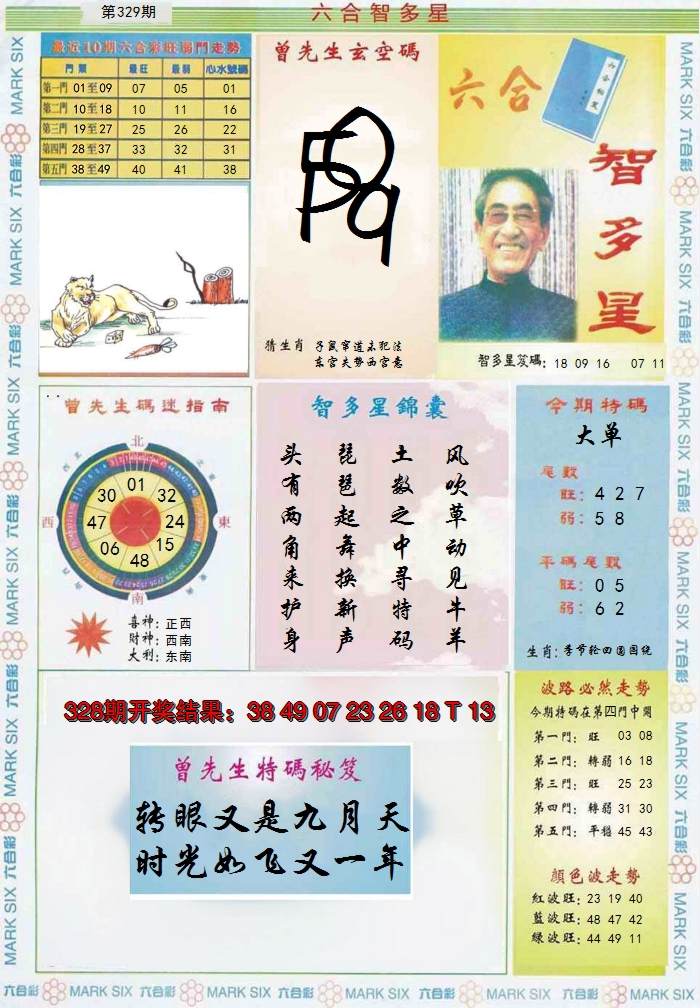 第329期
六合智多星
最近10期六合彩旺弱門走勢
門票 最旺 最弱 心水號碼
第一門 01至09 07 05 01
第二門 10至18 10 11 16
第三門 19至27 25 26 22
第四門 28至37 33 32 31
第五門 38至49 40 41 38
曾先生玄空碼
猜生肖 子鼠窜道未犯法
东宫夫势西宫意
六合
智多星
智多星笈碼: 18 09 16 07 11
曾先生碼迷指南
北
西北
東北
西
東
南
01
32
24
15
48
06
47
30
喜神: 正西
財神: 西南
大利: 东南
智多星錦囊
风吹草动见牛羊
土数之中寻特码
琵琶起舞换新声
头有两角来护身
今期特碼
大单
尾數
旺: 4 2 7
弱: 5 8
平碼尾數
旺: 0 5
弱: 6 2
生肖: 季节轮回圆围绕
328期开奖结果: 38 49 07 23 26 18 T 13
曾先生特碼秘笈
转眼又是九月天
时光如飞又一年
波路必然走勢
今期特碼在第四門中開
第一門: 旺 03 08
第二門: 轉弱 16 18
第三門: 旺 25 23
第四門: 轉弱 31 30
第五門: 平穩 45 43
顏色波走勢
紅波旺: 23 19 40
藍波旺: 48 47 42
綠波旺: 44 49 11
六合彩 MARK SIX 六合彩 MARK SIX 六合彩 MARK SIX 六合彩 MARK SIX 六合彩 MARK SIX